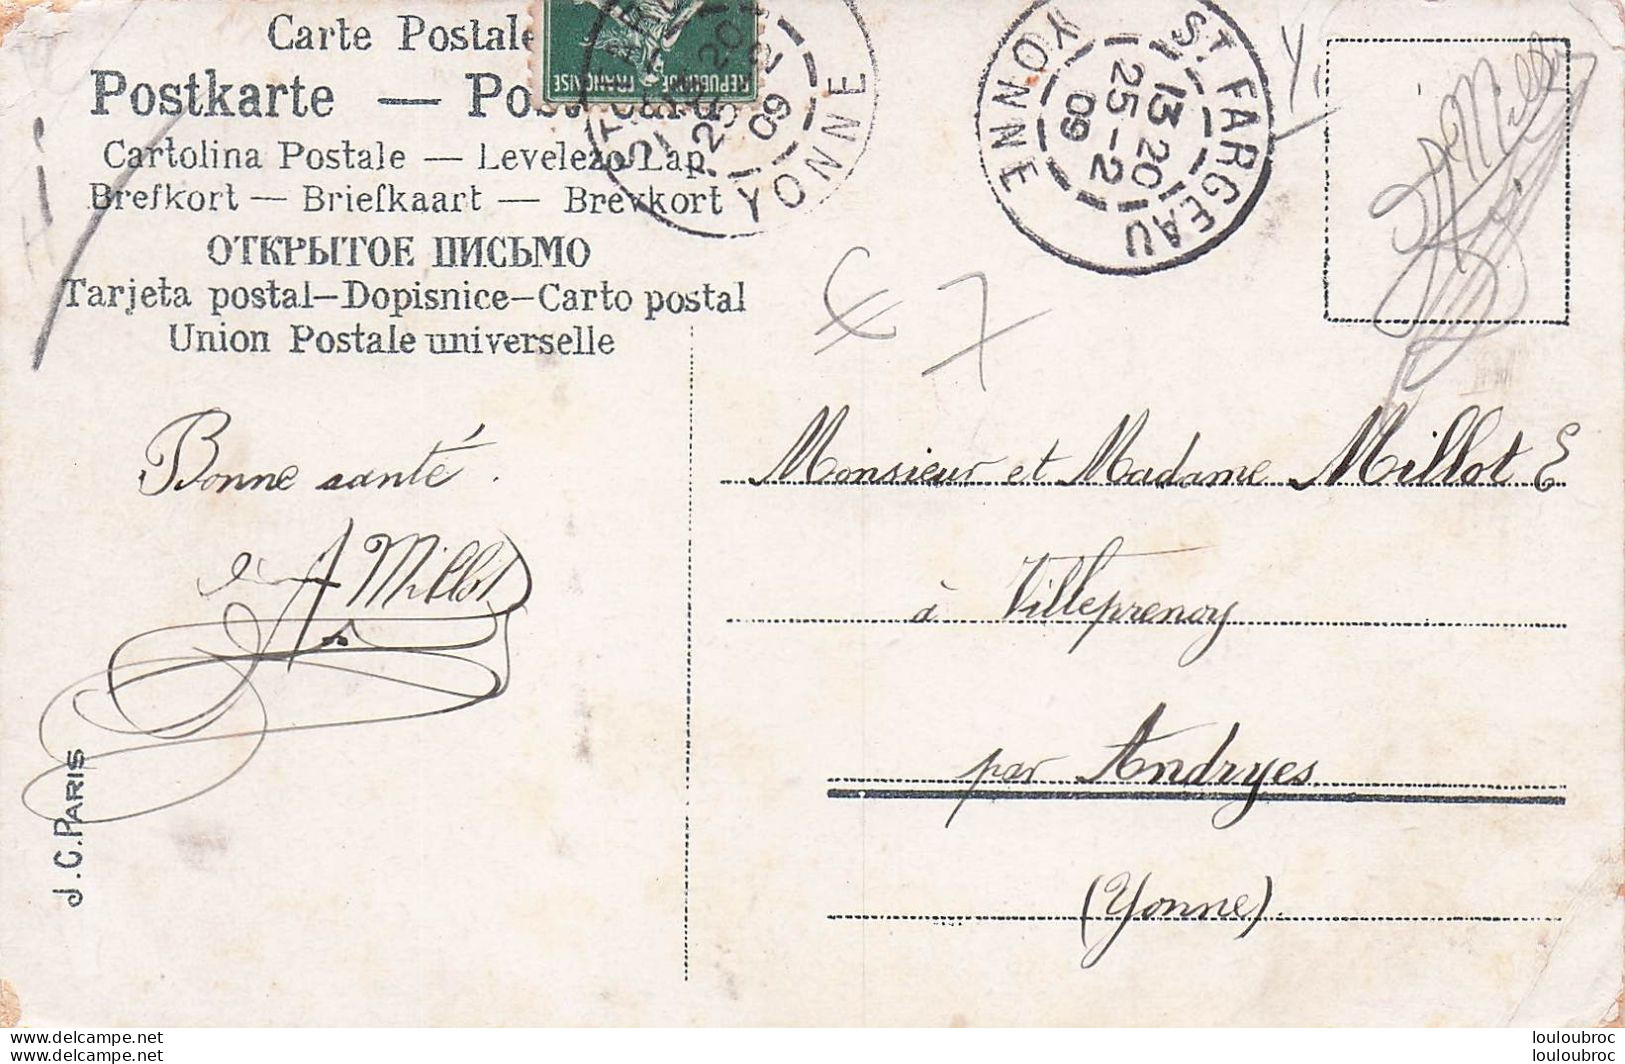 Carte Postale
Postkarte — Post card
Cartolina Postale — Levelezo Lap
Brefkort — Briefkaart — Brevkort
ОТКРЫТОЕ ПИСЬМО
Tarjeta postal—Dopisnice—Carto postal
Union Postale universelle
REPUBLIQUE FRANÇAISE
YONNE
ST FARGEAU
13 20
25 - 2
09
YONNE
7
Bonne santé.
A Millot
J.C. PARIS
Monsieur et Madame Millot E
à Villeprenoy
par Andryes
(Yonne).
delcampe.net
louloubroc
delcampe.net
louloubroc